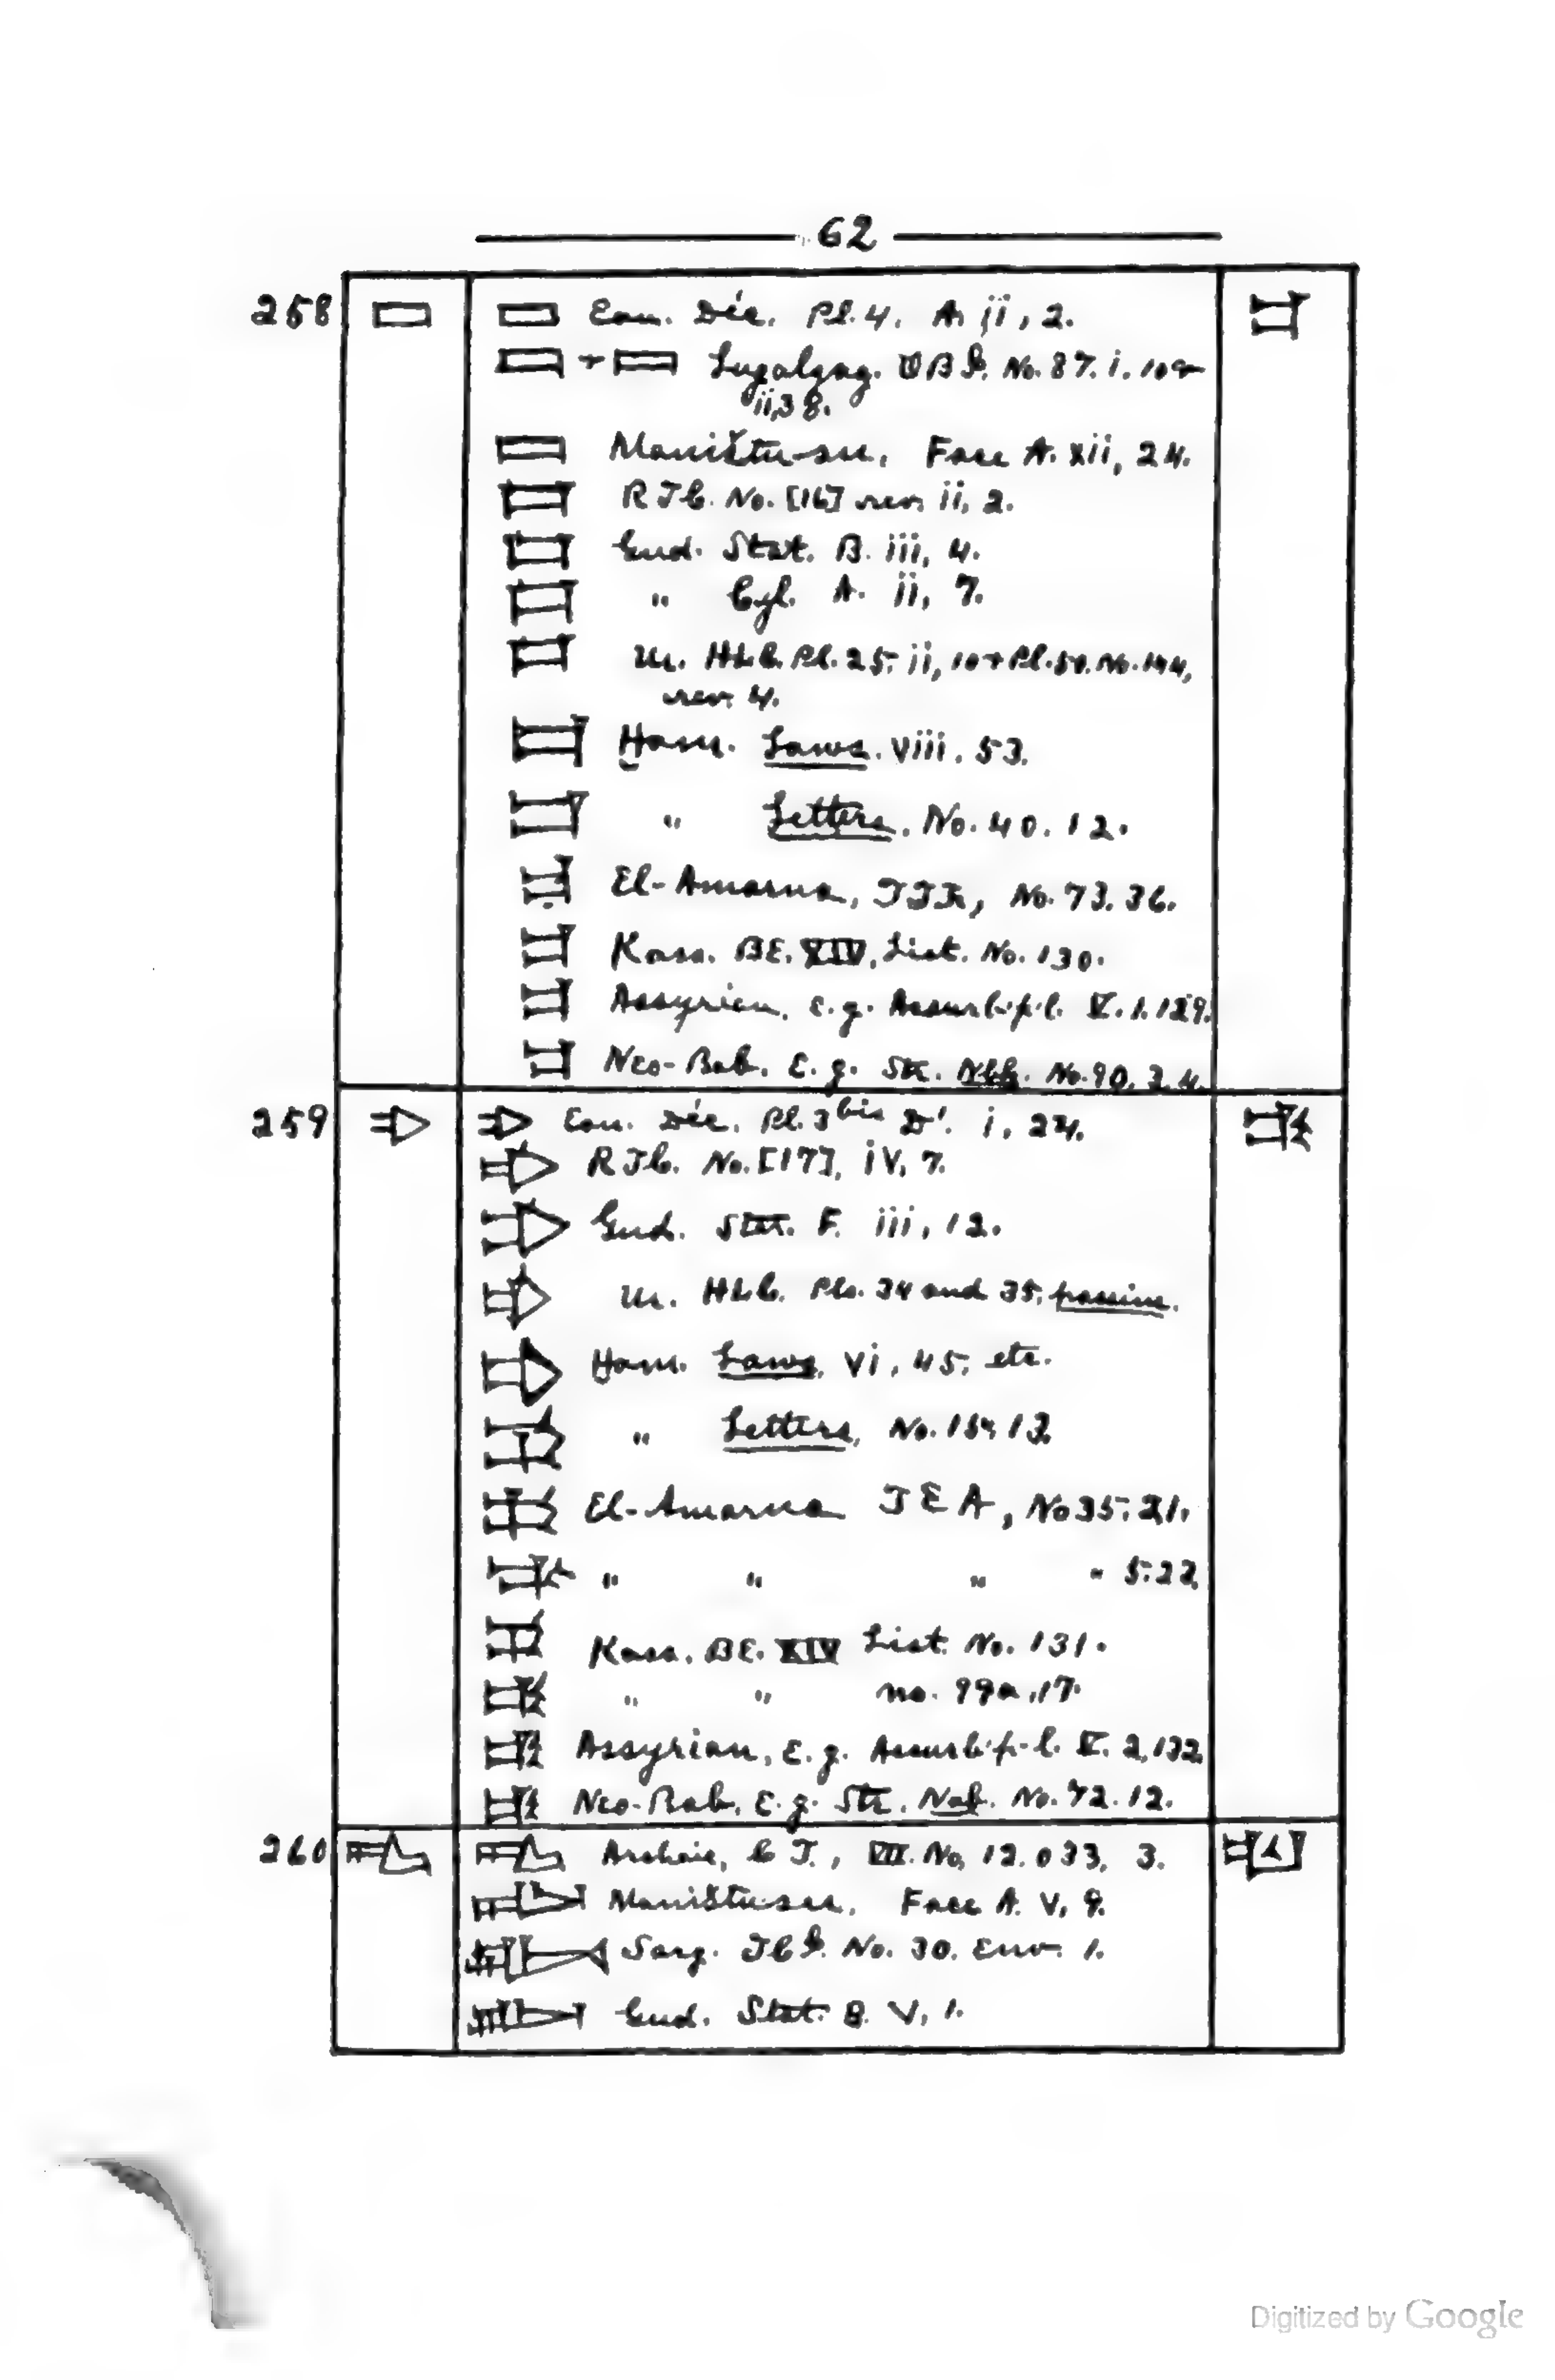 62
258 Ean. Déc. Pl. 4. A. ii, 2.
+ Lugalzag. OBI. No. 87. i. 10 +
ii, 38.
Maništu-su, Face A. xii, 24.
RTC. No. [16] rev. ii, 2.
Gud. Stat. B. iii, 4.
" Cyl. A. ii, 7.
Ur. HLC. Pl. 25. ii, 10 + Pl. 50. No. 144,
rev. 4.
Ḫam. Laws. viii. 53.
" Letters. No. 40. 12.
El-Amarna, No. 73. 36.
Kass. BE. XIV, List. No. 130.
Assyrian, e.g. Assurb-p-l. V. 1. 129.
Neo-Bab. e.g. Str. Nbk. No. 90. 3. 4.
259 Ean. Déc. Pl. 3bis D'. i, 24.
RTC. No. [17], iv, 7.
Gud. Stat. F. iii, 12.
Ur. HLC. Pls. 34 and 35, passim.
Ḫam. Laws, vi, 45, etc.
" Letters, No. 13
El-Amarna TEA, No 35. 21.
" " " " 5. 22.
Kass. BE. XIV List. No. 131.
" " no. 99a, 17.
Assyrian, e.g. Assurb-p-l. V. 2, 132.
Neo-Bab. e.g. Str. Nab. No. 72. 12.
260 Archaic, CT., VII. No. 12.033, 3.
Maništu-su, Face A. V, 9.
Sarg. No. 30. Env. 1.
Gud. Stat. B. V, 1.
Digitized by Google